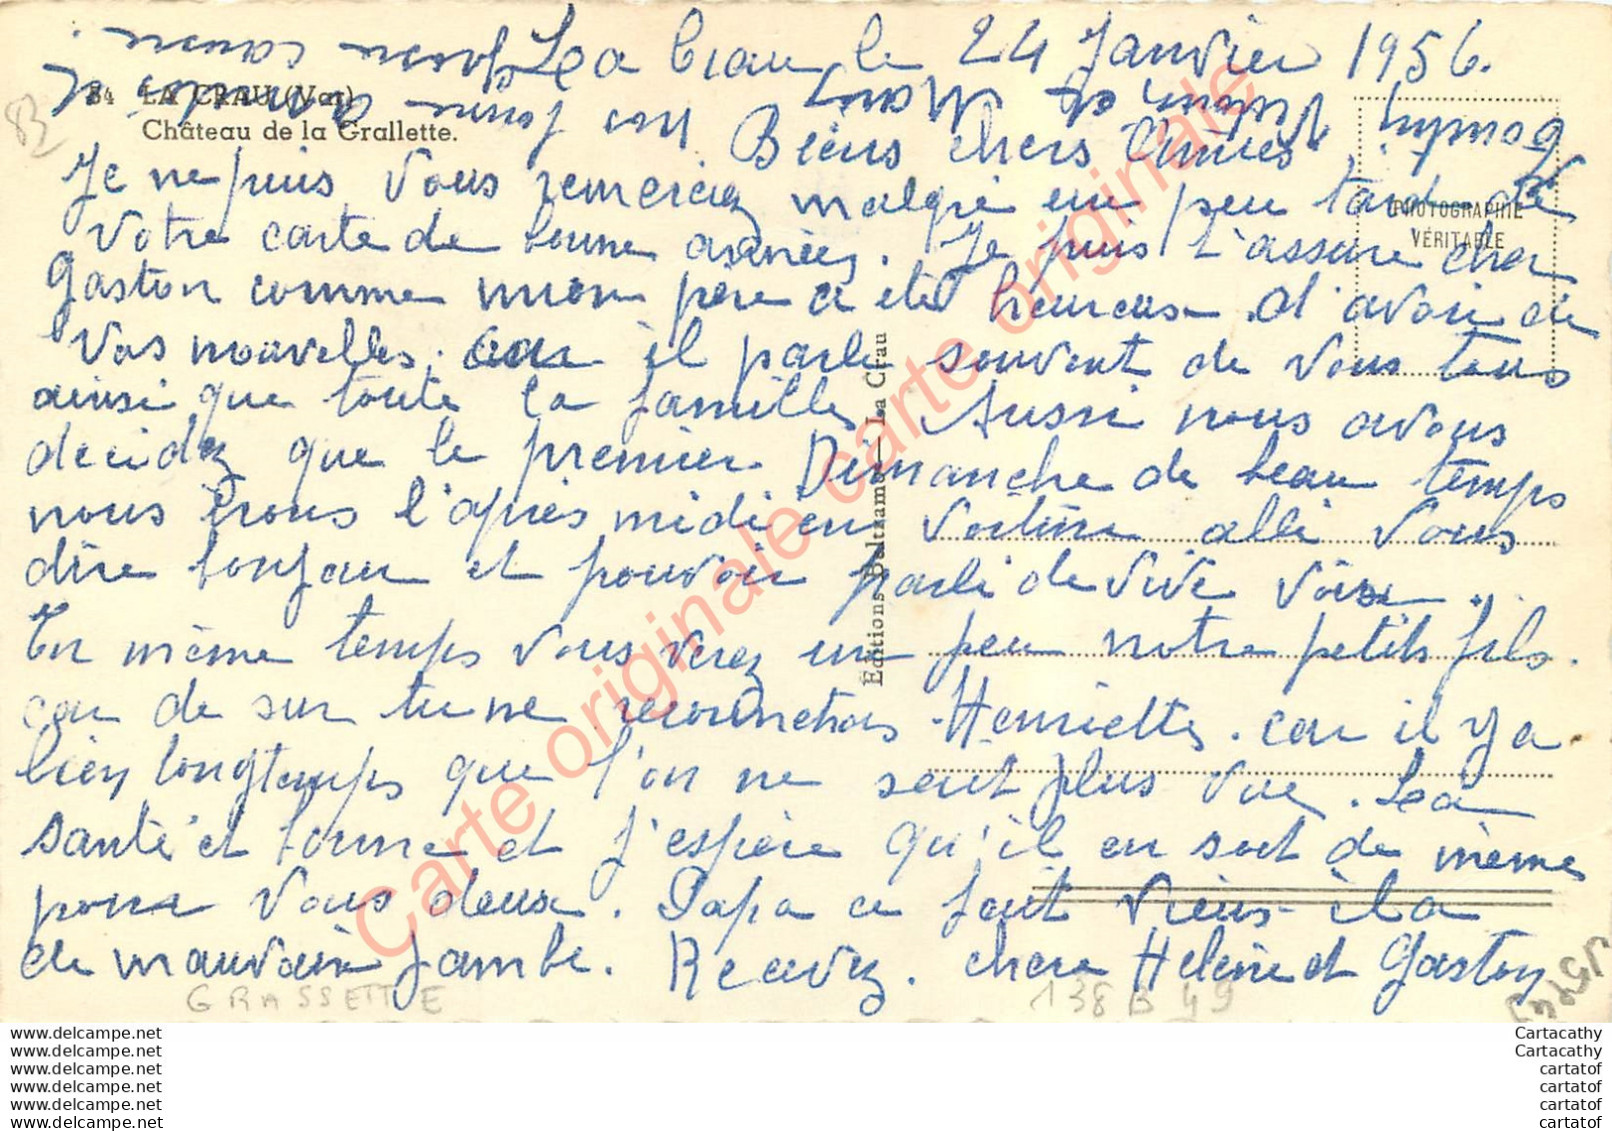 La Crau le 24 Janvier 1956.
84 LA CRAU (Var)
Château de la Grallette.
Biens chers Amies
PHOTOGRAPHIE
VÉRITABLE
Je ne puis Vous remerciez malgré un peu tard de
Votre carte de bonne années. Je puis t'assure cher
Gaston comme mon père a été heureuse d'avoir de
Vos nouvelles. car il parle souvent de Vous tous
ainsi que toute la famille. Aussi nous avons
decidez que le premier Dimanche de beau temps
nous irons l'après midi en voiture allé Vous
dire bonjour et pouvoir parlé de vive voix.
En même temps vous verez un peu notre petits fils.
car de sur tu ne reconnetras Henriette. car il y a
bien longtemps que l'on ne sent plus vue. La
santé et bonne et j'espère qu'il en soit de même
pour Vous deux. Papa ce fait vieus il a
de mauvaise jambe. Recevez. chere Helène et Gaston
Editions Beltrame — La Crau
GRASSETTE
138 B 49
83
Carte originale carte originale
Carte originale carte originale
www.delcampe.net
www.delcampe.net
www.delcampe.net
www.delcampe.net
www.delcampe.net
www.delcampe.net
Cartacathy
Cartacathy
cartatof
cartatof
cartatof
cartatof